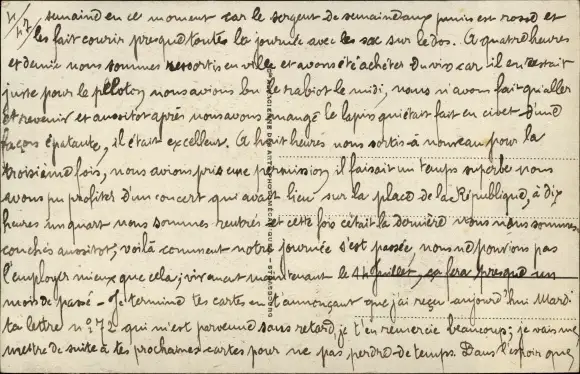 4/42
semaine en ce moment car le sergent de semaine aux punis est rosse et
les fait courir presque toutes la journée avec les sac sur le dos. A quatre heures
et demie nous sommes ressortis en ville et avons été acheter du vin car il en restait
juste pour le peloton, nous avions bu le rabiot le midi, nous n'avons fait qu'aller
et revenir et aussitot après nous avons mangé le lapin qui était fait en civet d'une
façons épatante, il était excellent. A huit heures nous sortis à nouveau pour la
troisième fois, nous avions pris une permission, il faisait un temps superbe nous
avons pu profiter d'un concert qui avait lieu sur la place de la République, à dix
heures un quart nous sommes rentrés et cette fois c'était la dernière nous nous sommes
couchés aussitot, voilà comment notre journée s'est passée, nous ne pouvions pas
l'employer mieux que cela; vivement maintenant le 14 Juillet, ça fera presque un
mois de passé - Je termine tes cartes en t'annonçant que j'ai reçu aujourd'hui Mardi
ta lettre n° 72 qui m'est parvenue sans retard, je t'en remercie beaucoup; je vais me
mettre de suite à tes prochaines cartes pour ne pas perdre de temps. Dans l'espoir que